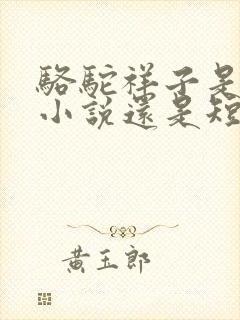 駱駝祥子是
小說還是短
黃玉郎